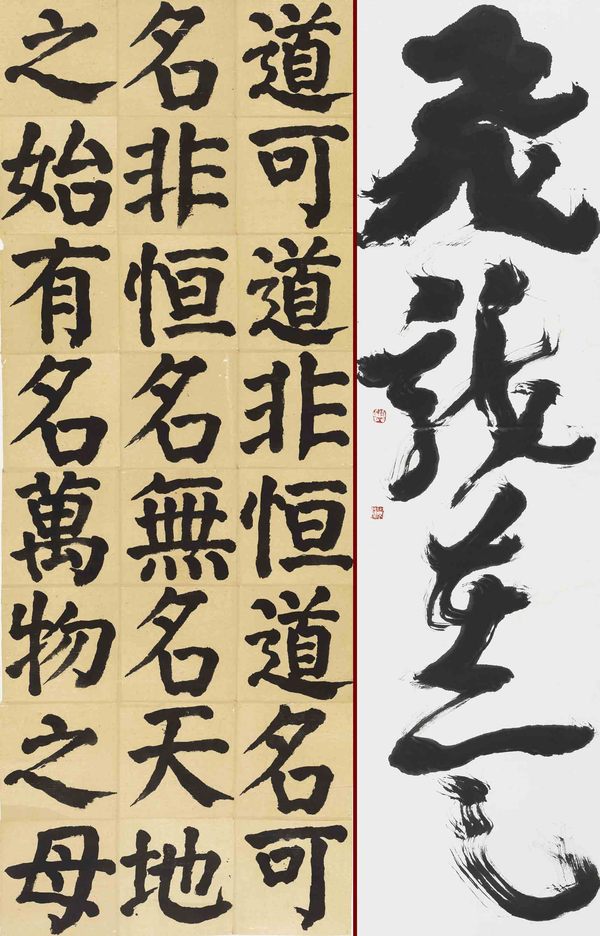 道可道非恒道名可
名非恒名無名天地
之始有名萬物之母
飛龍在天